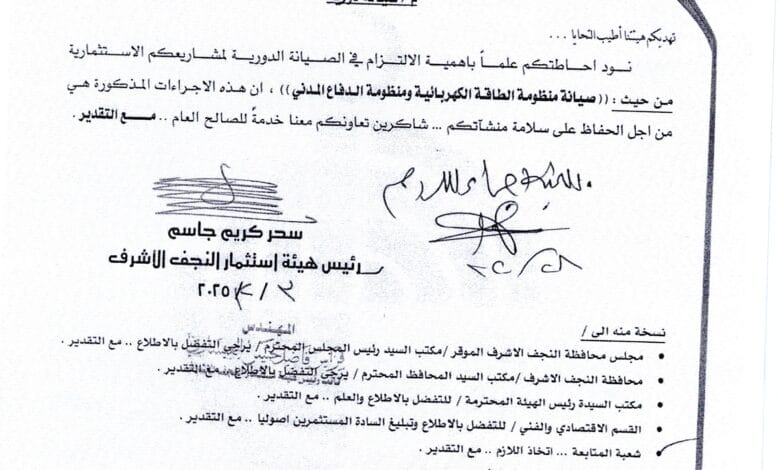 م / الصيانة الدورية
تهديكم هيئتنا أطيب التحايا ...
نود احاطتكم علماً باهمية الالتزام في الصيانة الدورية لمشاريعكم الاستثمارية
من حيث : ((صيانة منظومة الطاقة الكهربائية ومنظومة الدفاع المدني)) ، ان هذه الاجراءات المذكورة هي
من اجل الحفاظ على سلامة منشآتكم ... شاكرين تعاونكم معنا خدمةً للصالح العام .. مع التقدير .
سحر كريم جاسم
رئيس هيئة إستثمار النجف الأشرف
٢٠٢٥/ /٢
المهندس
نسخة منه الى /
• مجلس محافظة النجف الاشرف الموقر /مكتب السيد رئيس المجلس المحترم / يرجى التفضل بالاطلاع .. مع التقدير .
• محافظة النجف الاشرف /مكتب السيد المحافظ المحترم / يرجى التفضل بالاطلاع .. مع التقدير .
• مكتب السيدة رئيس الهيئة المحترمة / للتفضل بالاطلاع والعلم .. مع التقدير .
• القسم الاقتصادي والفني / للتفضل بالاطلاع وتبليغ السادة المستثمرين اصوليا .. مع التقدير .
• شعبة المتابعة ... اتخاذ اللازم .. مع التقدير .